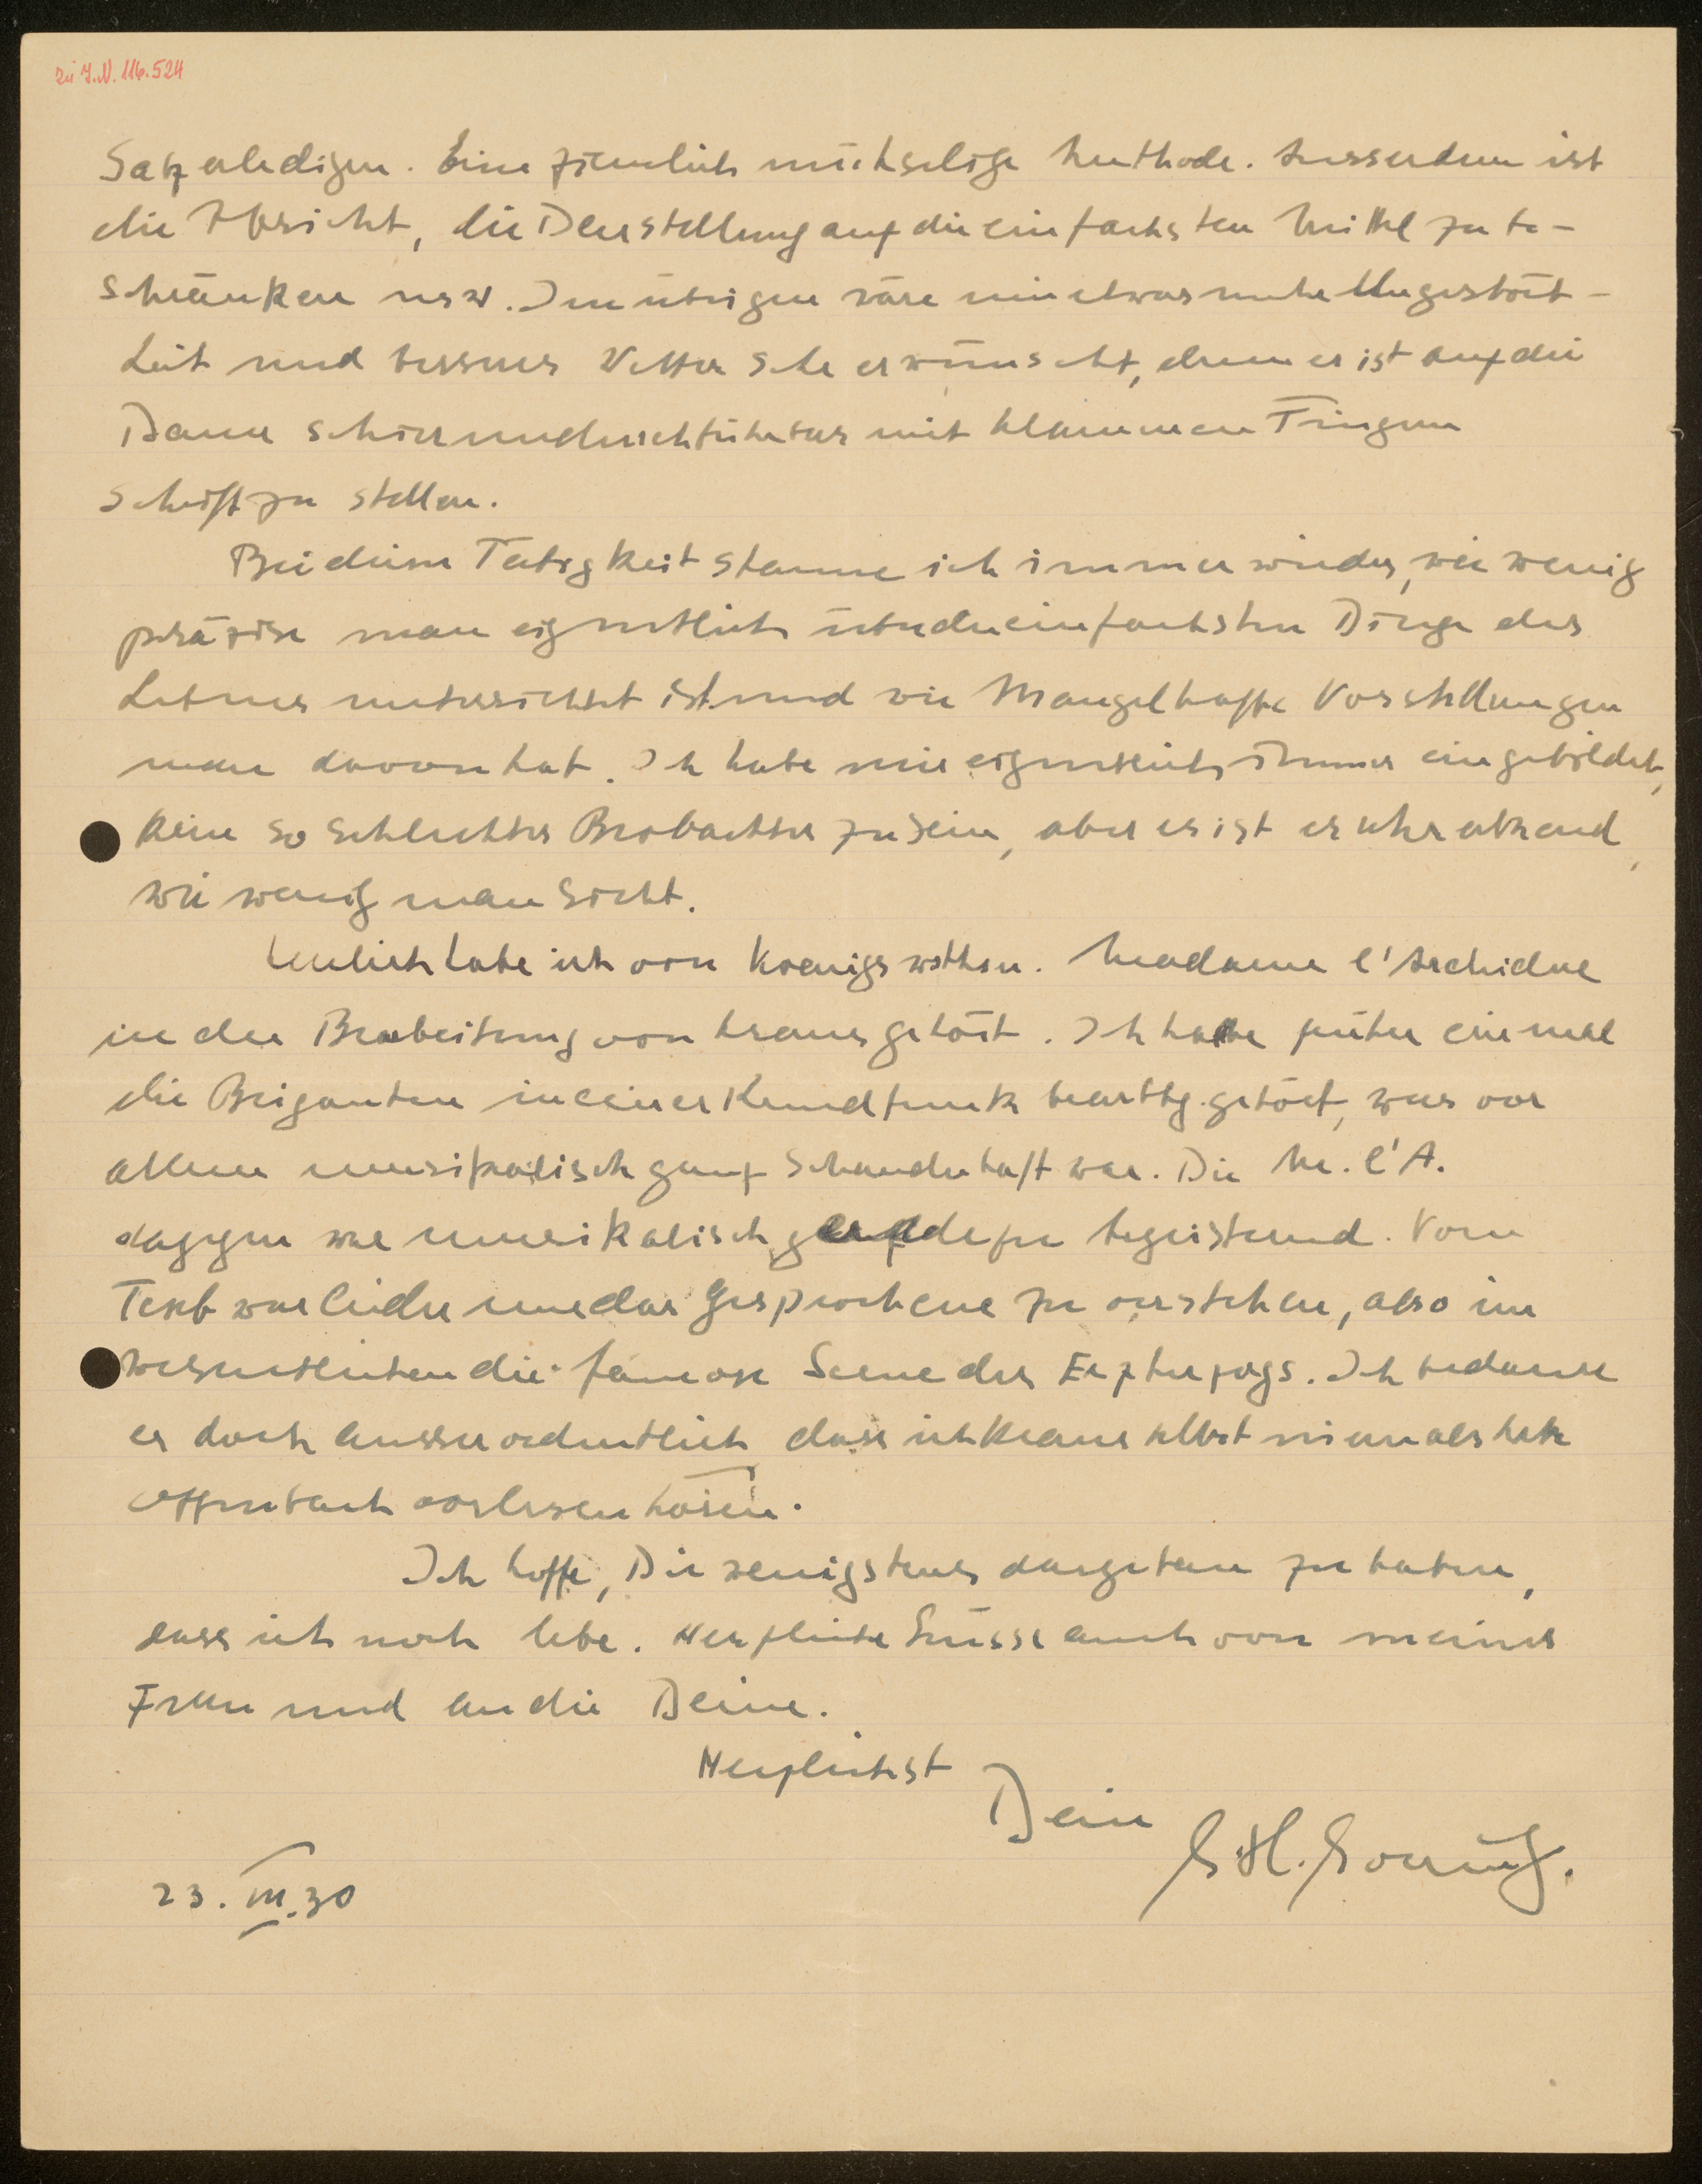 zu I.N. 116.524
Satz erledigen. Eine ziemlich mühselige Methode. Ausserdem ist
die Absicht, die Darstellung auf die einfachsten Mittel zu be-
schränken usw. Im übrigen wäre mir etwas mehr Ungestört-
heit und besseres Wetter sehr erwünscht, denn es ist auf die
Dauer schier undurchführbar mit klammen Fingern
Schrift zu stellen.
Bei dieser Tätigkeit staune ich immer wieder, wie wenig
präzise man eigentlich über die einfachsten Dinge des
Lebens unterrichtet ist und wie mangelhafte Vorstellungen
man davon hat. Ich habe mir eigentlich immer eingebildet,
kein so schlechter Beobachter zu sein, aber es ist
wie wenig man sieht.
Neulich habe ich von Koenigswusterh. Madame l'Archiduc
in der Bearbeitung von Kraus gehört. Ich habe früher einmal
die Briganten in einer Rundfunk bearbtg. gehört, was vor
allem musikalisch ganz schauderhaft war. Die M. l'A.
dagegen war musikalisch geradezu begeisternd. Vom
Text war leider nur das Gesprochene zu verstehen, also im
wesentlichen die famose Scene des Erzherzogs. Ich bedaure
es doch ausserordentlich dass ich Kraus selbst niemals habe
Offenbach vorlesen hören.
Ich hoffe, Dir wenigstens dargetan zu haben,
dass ich noch lebe. Herzliche Grüsse auch von meiner
Frau und an die Deine.
Herzlichst
Dein
23. III. 30